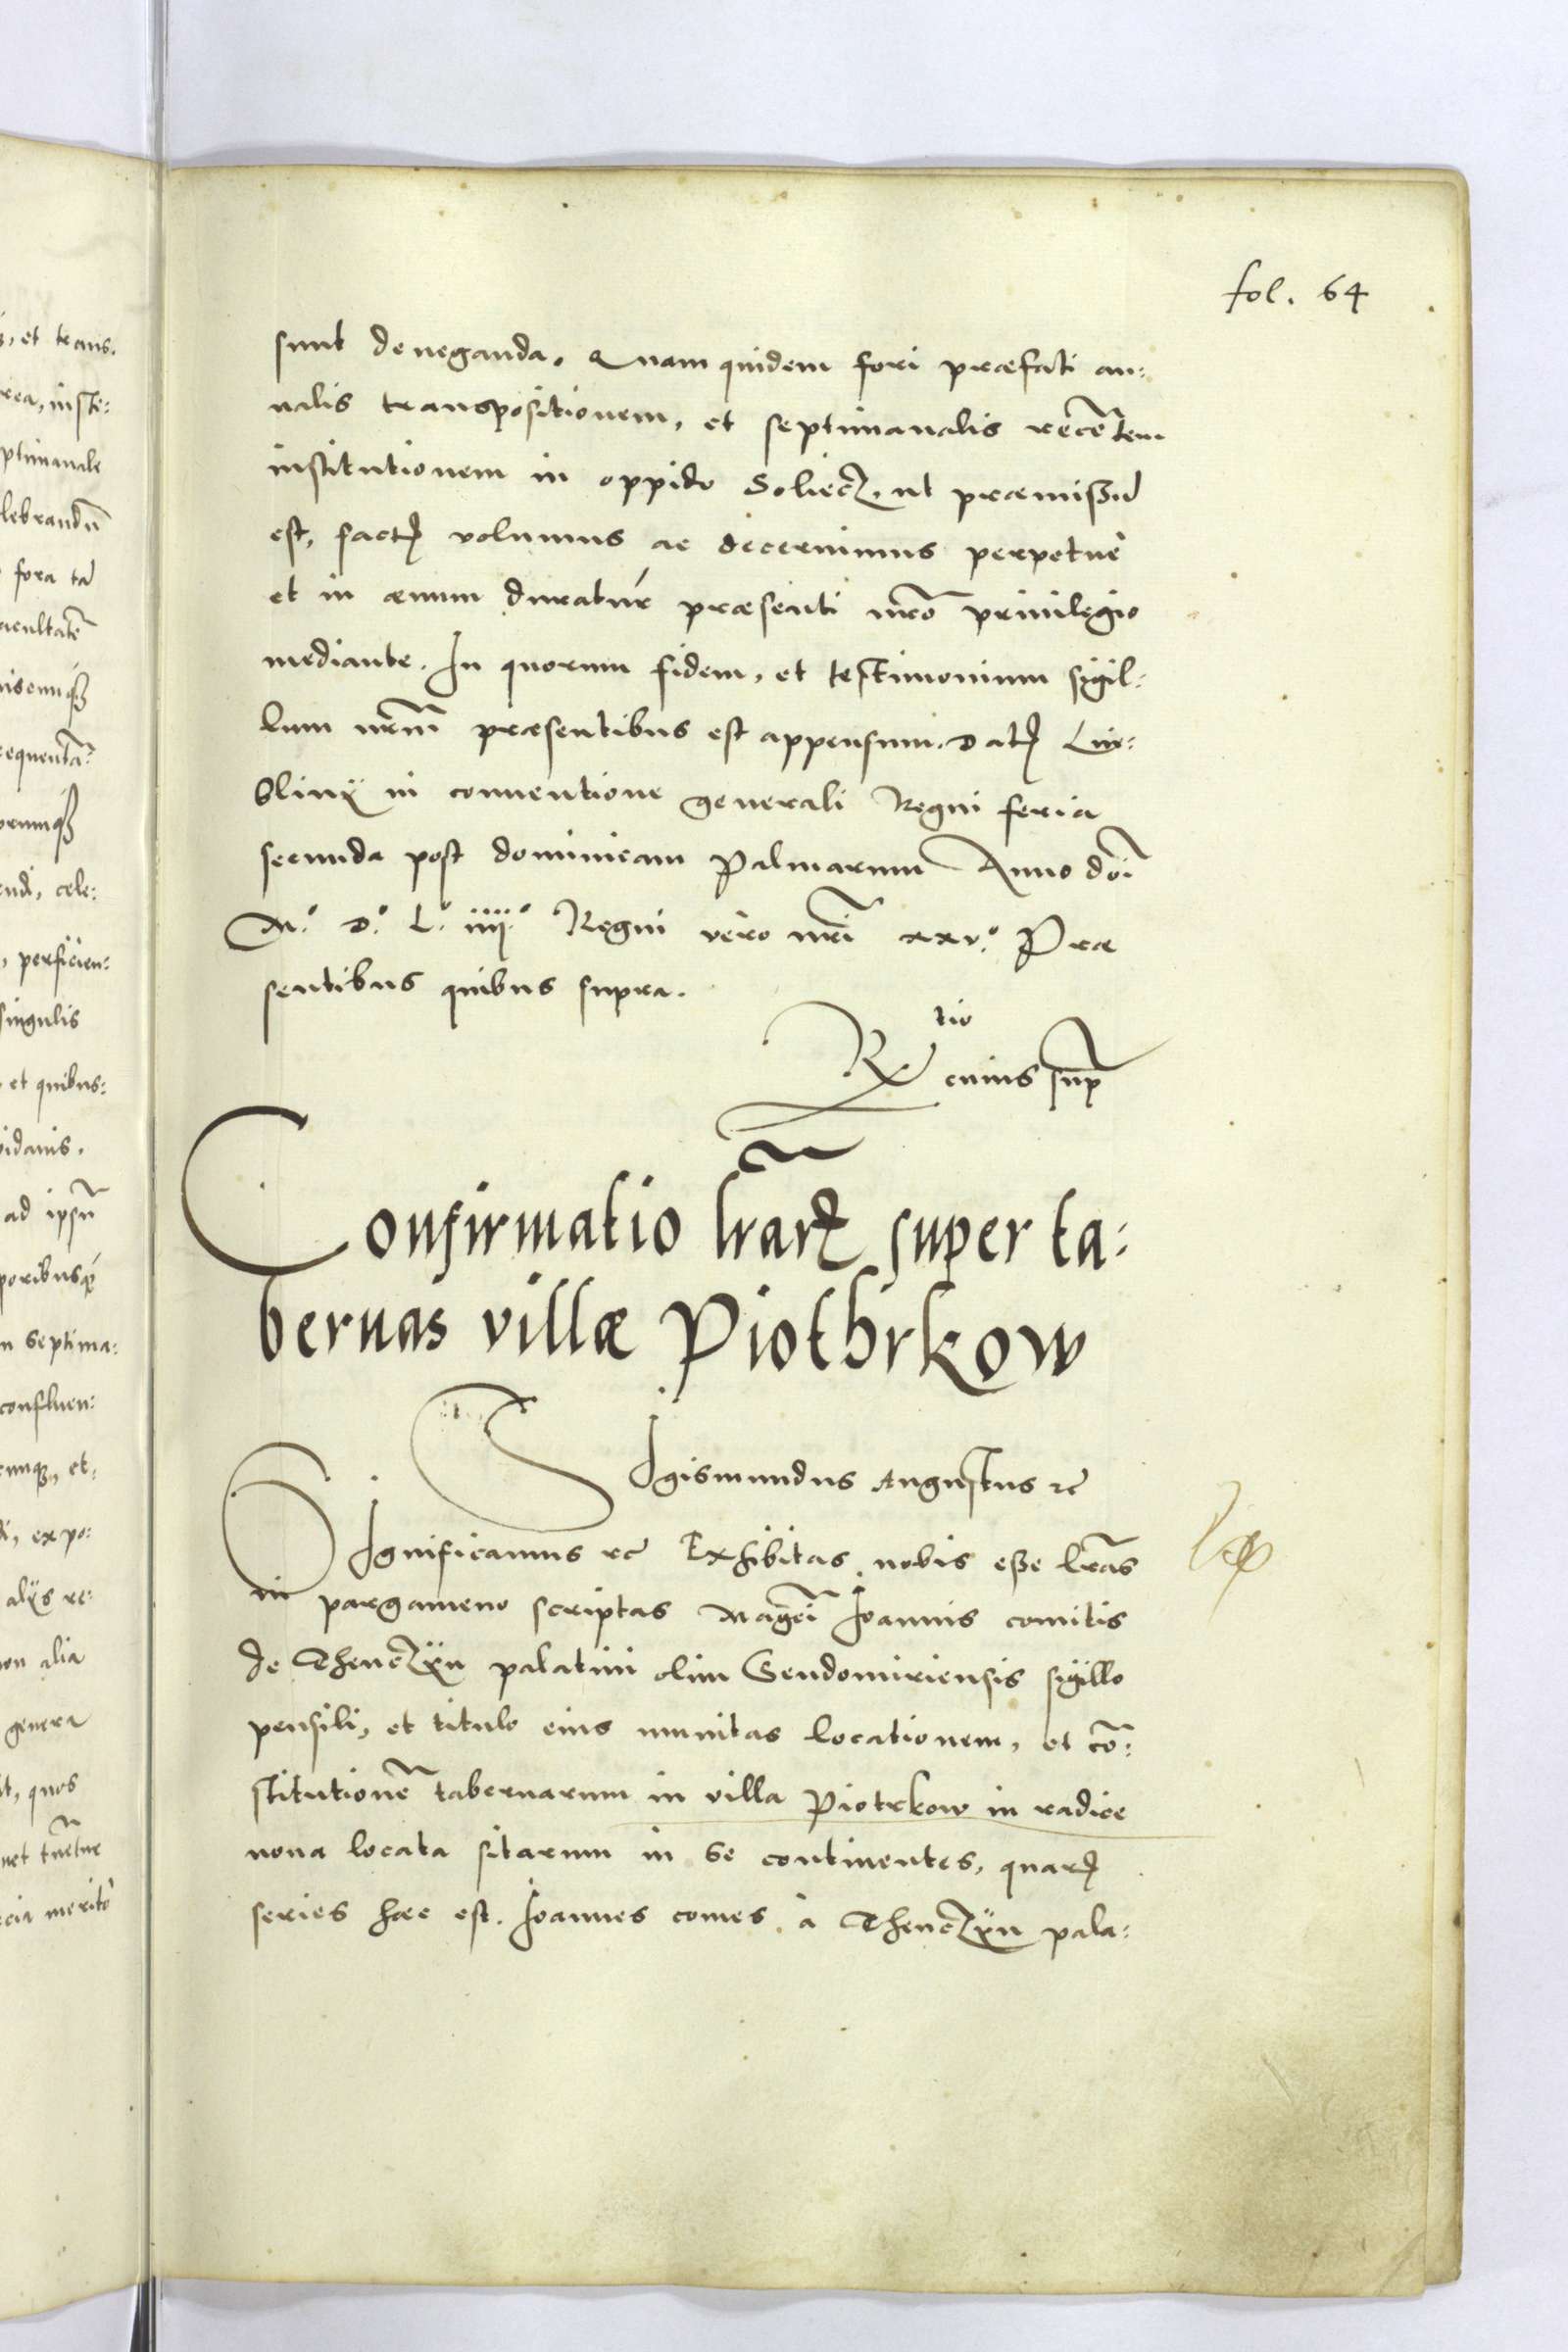 fol. 64
sunt deneganda. Quam quidem fori præfati an:
nalis transpositionem, et septimanalis recẽtem
institutionem in oppido Soliecz, ut præmissũ
est, factꝫ volumus ac decernimus perpetuè
et in æuum duraturé præsenti nrõ priuilegio
mediante. In quorum fidem, et testimonium sigil:
lum nrm̃ præsentibus est appensum. Datꝫ Lu:
blinÿ in conuentione generali Regni feria
secunda post dominicam Palmarum Anno doĩ
M.º D.º L.º iiij.º Regni vero nrĩ xxv.º Præ
sentibus quibus supra.
Rx tio cuius sup̃
Confirmatio lrãrꝝ super ta:
bernas villæ Piothrkow
SIgismundus Augustus ꝛc̃
SIgnificamus ꝛc̃ Exhibitas nobis esse lrãs
in pargameno scriptas Magcĩ Joannis comitis
de Thenczÿn palatini olim Sendomiriensis sigillo
pensili, et titulo eius munitas locationem, et cõ:
stitutionẽ tabernarum in villa Piotrkow in radice
noua locata sitarum in se continentes, quarꝫ
series hæc est. Joannes comes à Thenczÿn pala:
ꝫ, et trans.
rea, inste:
ptimanale
lebrandũ
fora tã
acultatẽ
uisenuqꝫ
requentã:
orumqꝫ
endi, cele:
, perficien:
singulis
et quibus:
idanis.
ad ipsũ
poribusqꝫ
n Septima:
confluen:
cumqꝫ, et:
di, expo:
alÿs re:
on alia
genera
it, quos